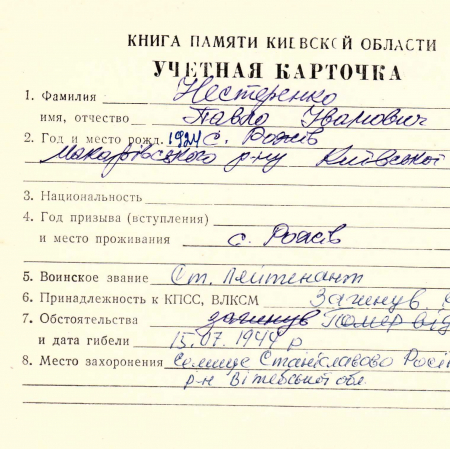 КНИГА ПАМЯТИ КИЕВСКОЙ ОБЛАСТИ
УЧЕТНАЯ КАРТОЧКА
1. Фамилия Нестеренко
имя, отчество Павло Іванович
2. Год и место рожд. 1924 с. Рожів
Макарівського р-ну Київської
3. Национальность
4. Год призыва (вступления)
и место проживания с. Рожів
5. Воинское звание Ст. лейтенант
6. Принадлежность к КПСС, ВЛКСМ Загинув
7. Обстоятельства загинув Помер від
и дата гибели 15.07.1944 р
8. Место захоронения Селище Станіславово Росі
р-н Вітебської обл.